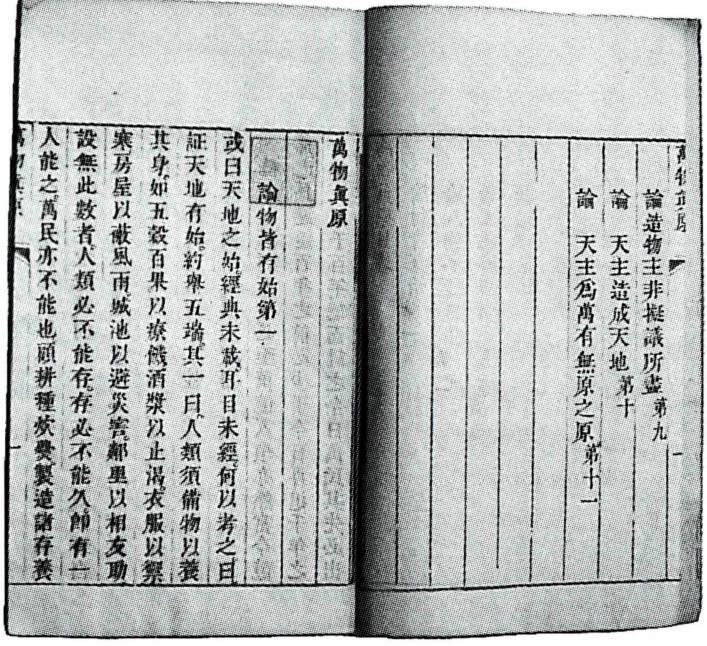 萬物眞原
一
論造物主非擬議所盡 第九
論 天主造成天地 第十
論 天主爲萬有無原之原 第十一
萬物眞原
論物皆有始第一
或曰天地之始。經典未載。耳目未經。何以考之。曰
証天地有始。約舉五端。其一曰。人類須備物以養
其身。如五穀百果以療餓。酒漿以止渴。衣服以禦
寒。房屋以蔽風雨。城池以避災害。鄰里以相友助
設無此數者。人類必不能存。存必不能久。卽有一
人能之。萬民亦不能也。顧耕種炊爨製造諸存養
萬物眞原
一